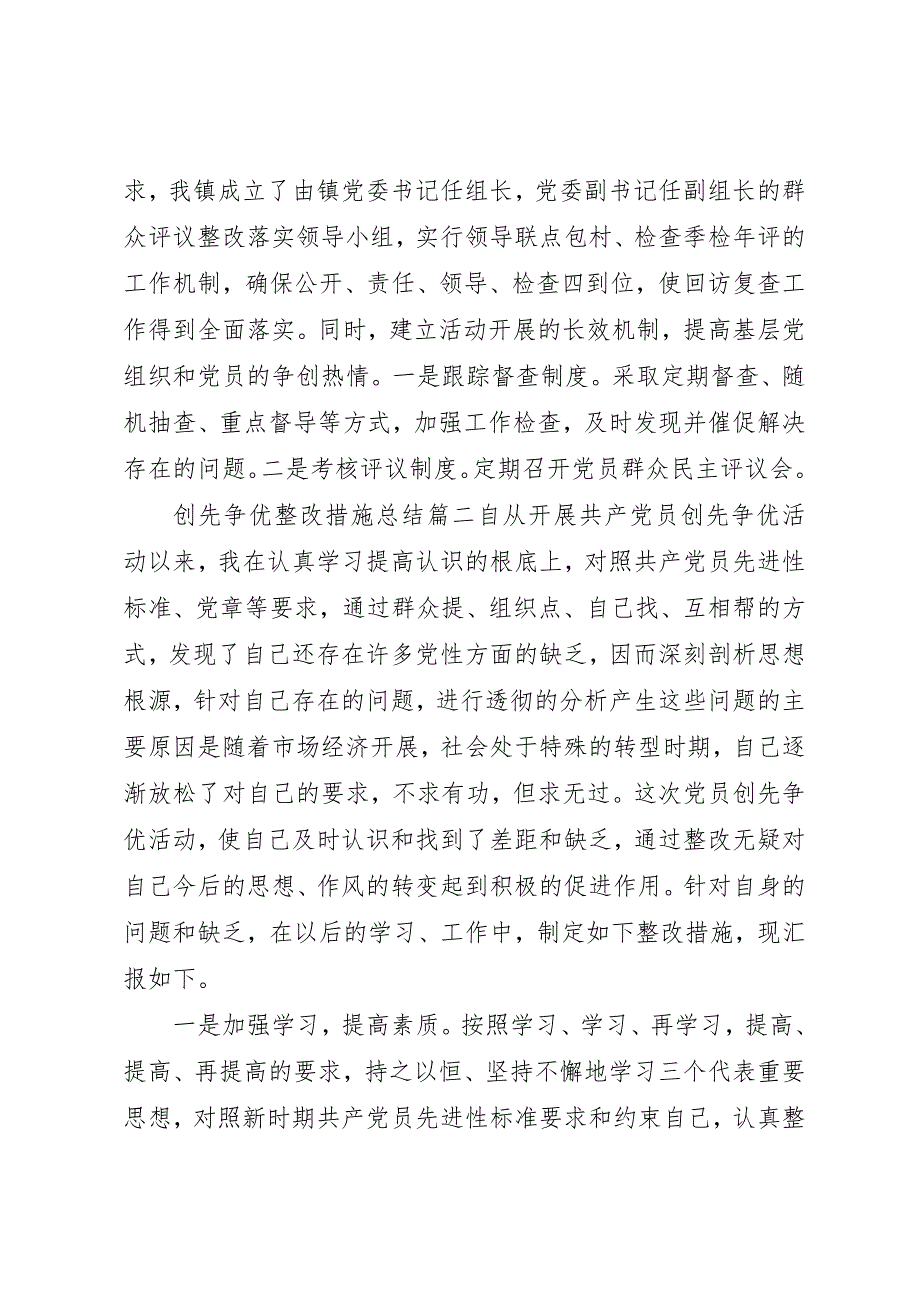 求，我镇成立了由镇党委书记任组长，党委副书记任副组长的群
众评议整改落实领导小组，实行领导联点包村、检查季检年评的
工作机制，确保公开、责任、领导、检查四到位，使回访复查工
作得到全面落实。同时，建立活动开展的长效机制，提高基层党
组织和党员的争创热情。一是跟踪督查制度。采取定期督查、随
机抽查、重点督导等方式，加强工作检查，及时发现并催促解决
存在的问题。二是考核评议制度。定期召开党员群众民主评议会。
创先争优整改措施总结篇二自从开展共产党员创先争优活
动以来，我在认真学习提高认识的根底上，对照共产党员先进性
标准、党章等要求，通过群众提、组织点、自己找、互相帮的方
式，发现了自己还存在许多党性方面的缺乏，因而深刻剖析思想
根源，针对自己存在的问题，进行透彻的分析产生这些问题的主
要原因是随着市场经济开展，社会处于特殊的转型时期，自己逐
渐放松了对自己的要求，不求有功，但求无过。这次党员创先争
优活动，使自己及时认识和找到了差距和缺乏，通过整改无疑对
自己今后的思想、作风的转变起到积极的促进作用。针对自身的
问题和缺乏，在以后的学习、工作中，制定如下整改措施，现汇
报如下。
一是加强学习，提高素质。按照学习、学习、再学习，提高、
提高、再提高的要求，持之以恒、坚持不懈地学习三个代表重要
思想，对照新时期共产党员先进性标准要求和约束自己，认真整